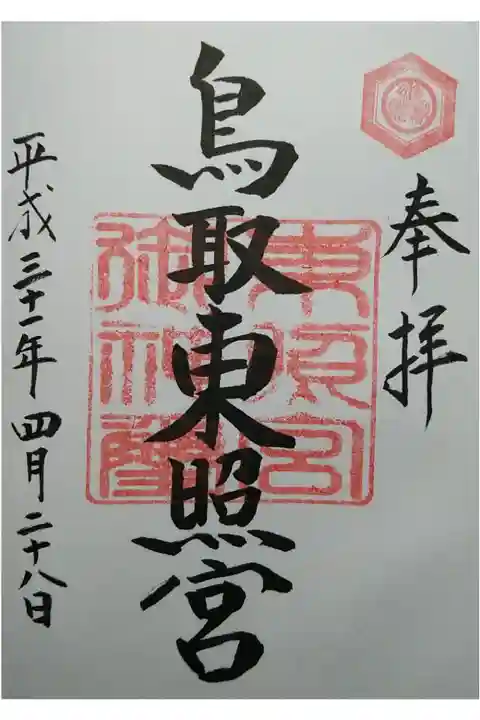 奉拝
鳥取東照宮
東照宮
御神璽
平成三十一年四月二十八日